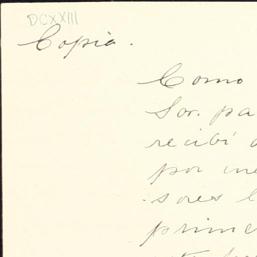 DCXXIII
Copia.
Como
Sor. pa
recibí
por me
sores l
prime